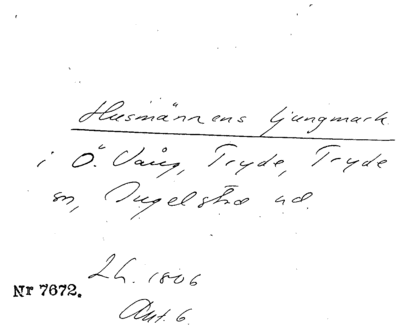 Husmännens ljungmark
i Ö. Vång, Tryde, Tryde
sn, Ingelstad hd.
Lh. 1806
Nr 7672.
Akt. 6.